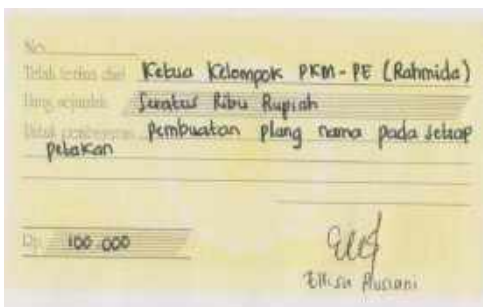 No.
Telah terima dari Ketua Kelompok PKM-PE (Rahmida)
Uang sejumlah Seratus Ribu Rupiah
Untuk pembayaran Pembuatan plang nama pada setiap
petakan
Rp. 100 000